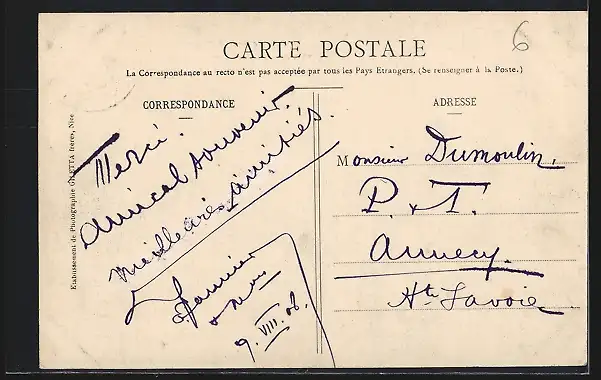 6
CARTE POSTALE
La Correspondance au recto n'est pas acceptée par tous les Pays Etrangers. (Se renseigner à la Poste.)
CORRESPONDANCE
Merci.
Amical souvenir.
Meilleures amitiés.
& Mme
9. VIII. 08.
Etablissement de Photographie GILETTA frères, Nice
ADRESSE
Monsieur Dumoulin.
P. & T.
Annecy.
Hte Savoie